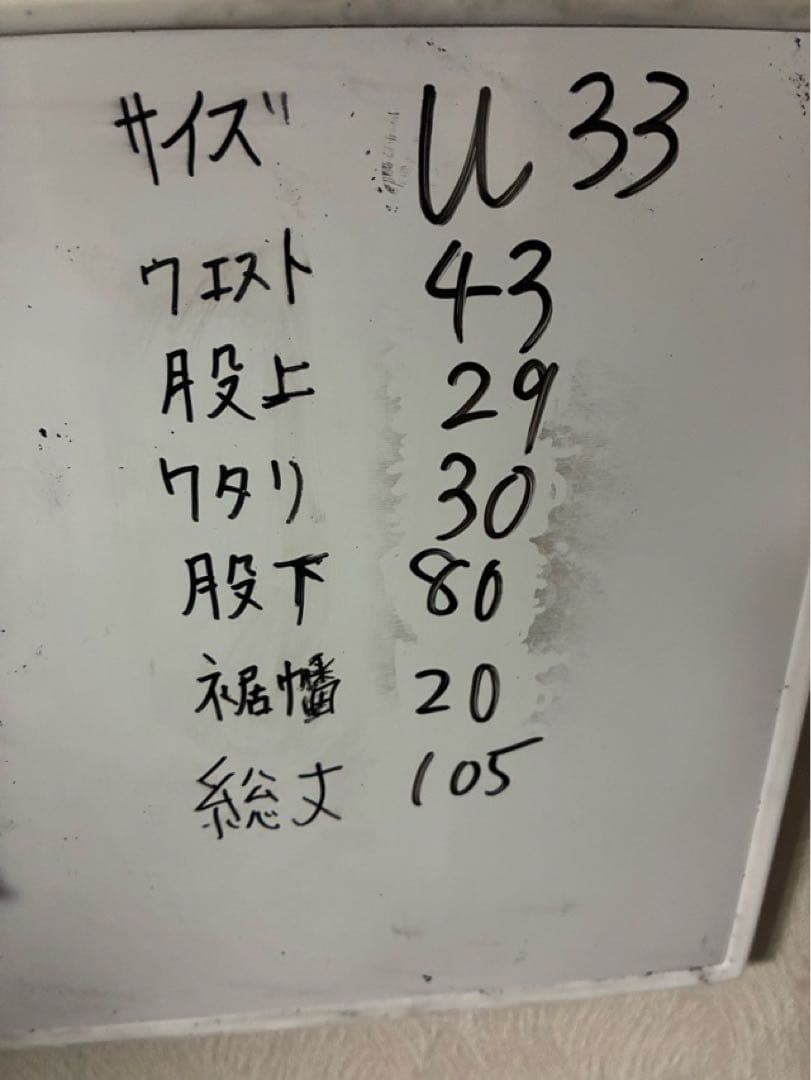 サイズ W33
ウエスト 43
股上 29
ワタリ 30
股下 80
裾幡 20
総丈 105